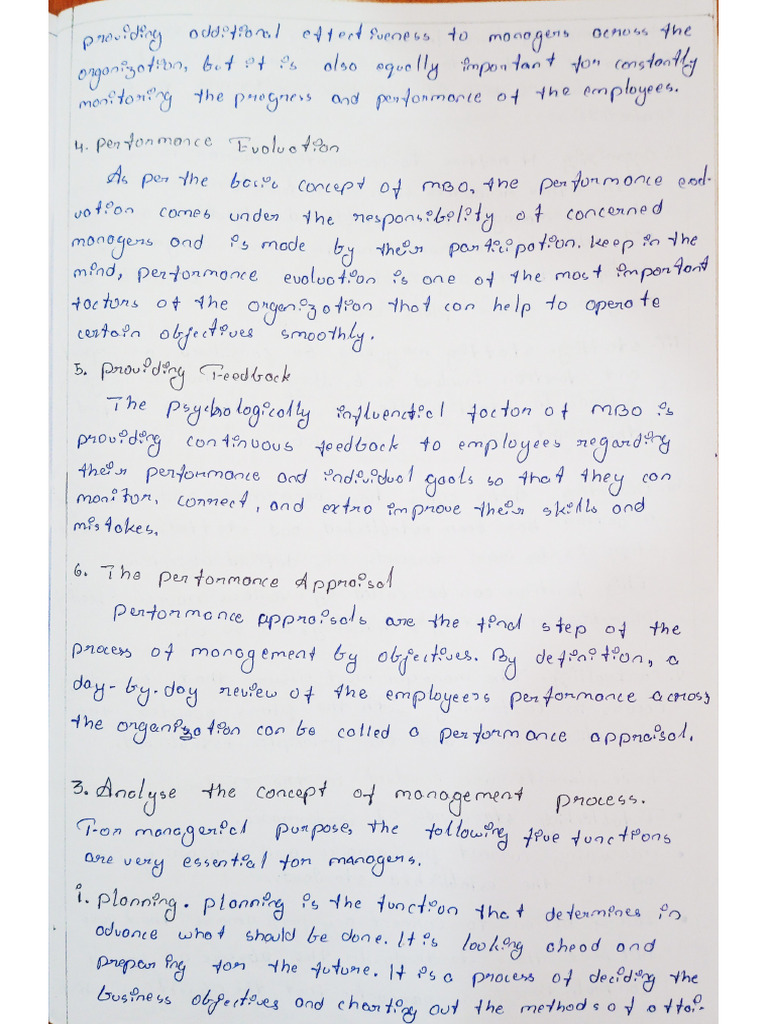 providing additional effectiveness to managers across the
organization, but it is also equally important for constantly
monitoring the progress and performance of the employees.
4. Performance Evaluation
As per the basic concept of MBO, the performance eval-
uation comes under the responsibility of concerned
managers and is made by their participation. Keep in the
mind, performance evaluation is one of the most important
factors of the organization that can help to operate
certain objectives smoothly.
5. Providing Feedback
The psychologically influenctial factor of MBO is
providing continuous feedback to employees regarding
their performance and individual goals so that they can
monitor, correct, and extra improve their skills and
mistakes.
6. The performance Appraisal
Performance appraisals are the final step of the
process of management by objectives. By definition, a
day-by-day review of the employeers performance across
the organization can be called a performance appraisal.
3. Analyse the concept of management process.
For managerial purpose, the following five functions
are very essential for managers.
i. Planning. Planning is the function that determines in
advance what should be done. It is looking ahead and
preparing for the future. It is a process of deciding the
business objectives and charting out the methods of attai-